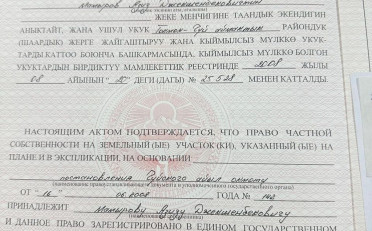 Матыров Азиз Джекшенбекович
ЖЕКЕ МЕНЧИГИНЕ ТААНДЫК ЭКЕНДИГИН
АНЫКТАЙТ, ЖАНА УШУЛ УКУК РАЙОНДУК
(ШААРДЫК) ЖЕРГЕ ЖАЙГАШТЫРУУ ЖАНА КЫЙМЫЛСЫЗ МҮЛККӨ УКУК-
ТАРДЫ КАТТОО БОЮНЧА БАШКАРМАСЫНДА, КЫЙМЫЛСЫЗ МҮЛККӨ БОЛГОН
УКУКТАРДЫН БИРДИКТҮҮ МАМЛЕКЕТТИК РЕЕСТРИНДЕ 2008 ЖЫЛЫ
08 АЙЫНЫН ДЕГИ (ДАТЫ) № 25528 МЕНЕН КАТТАЛДЫ.
НАСТОЯЩИМ АКТОМ ПОДТВЕРЖДАЕТСЯ, ЧТО ПРАВО ЧАСТНОЙ
СОБСТВЕННОСТИ НА ЗЕМЕЛЬНЫЙ (ЫЕ) УЧАСТОК (КИ), УКАЗАННЫЙ (ЫЕ) НА
ПЛАНЕ И В ЭКСПЛИКАЦИИ, НА ОСНОВАНИИ
постановления айыл окмоту
(наименование правоустанавливающего документа и уполномоченного государственного органа)
ОТ "16" 06.2008 ГОДА № 142
ПРИНАДЛЕЖИТ Матырову Азизу Джекшенбековичу
И ДАННОЕ ПРАВО ЗАРЕГИСТРИРОВАНО В ЕДИНОМ ГОСУДАРСТВЕННОМ